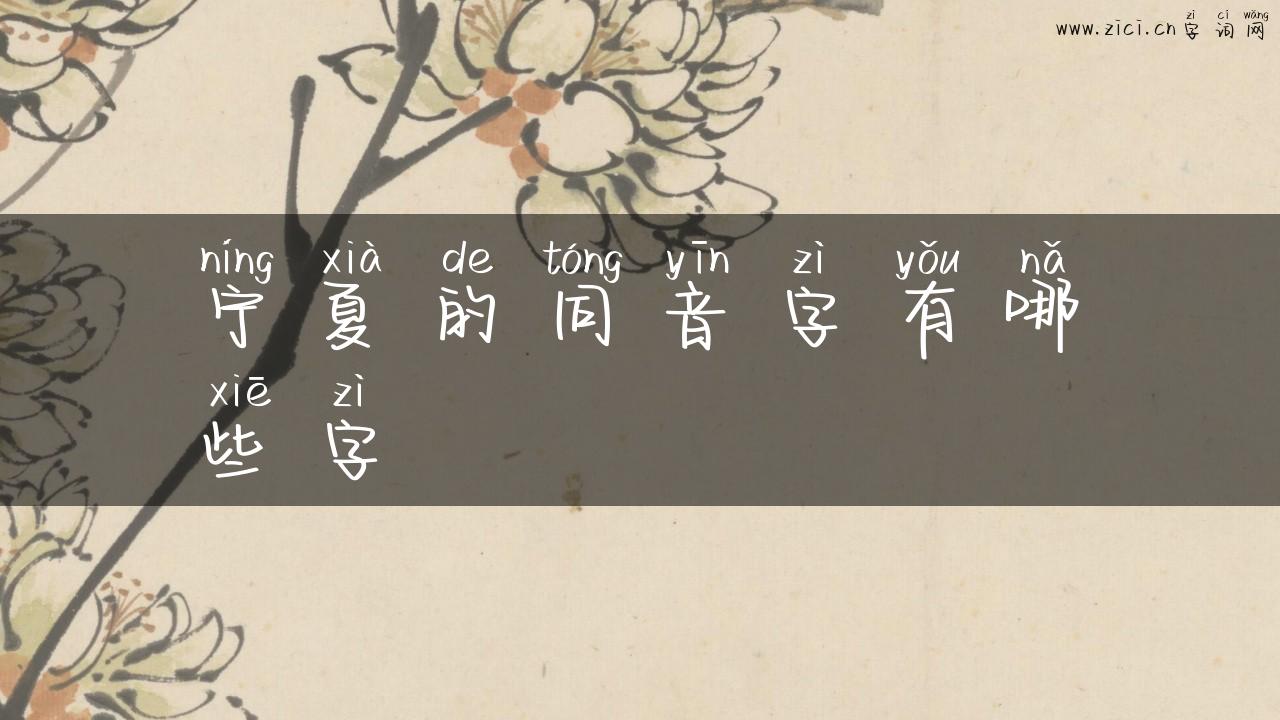 zì cí wǎng
www.zici.cn 字 词 网
níng xià de tóng yīn zì yǒu nǎ
宁 夏 的 同 音 字 有 哪
xiē zì
些 字